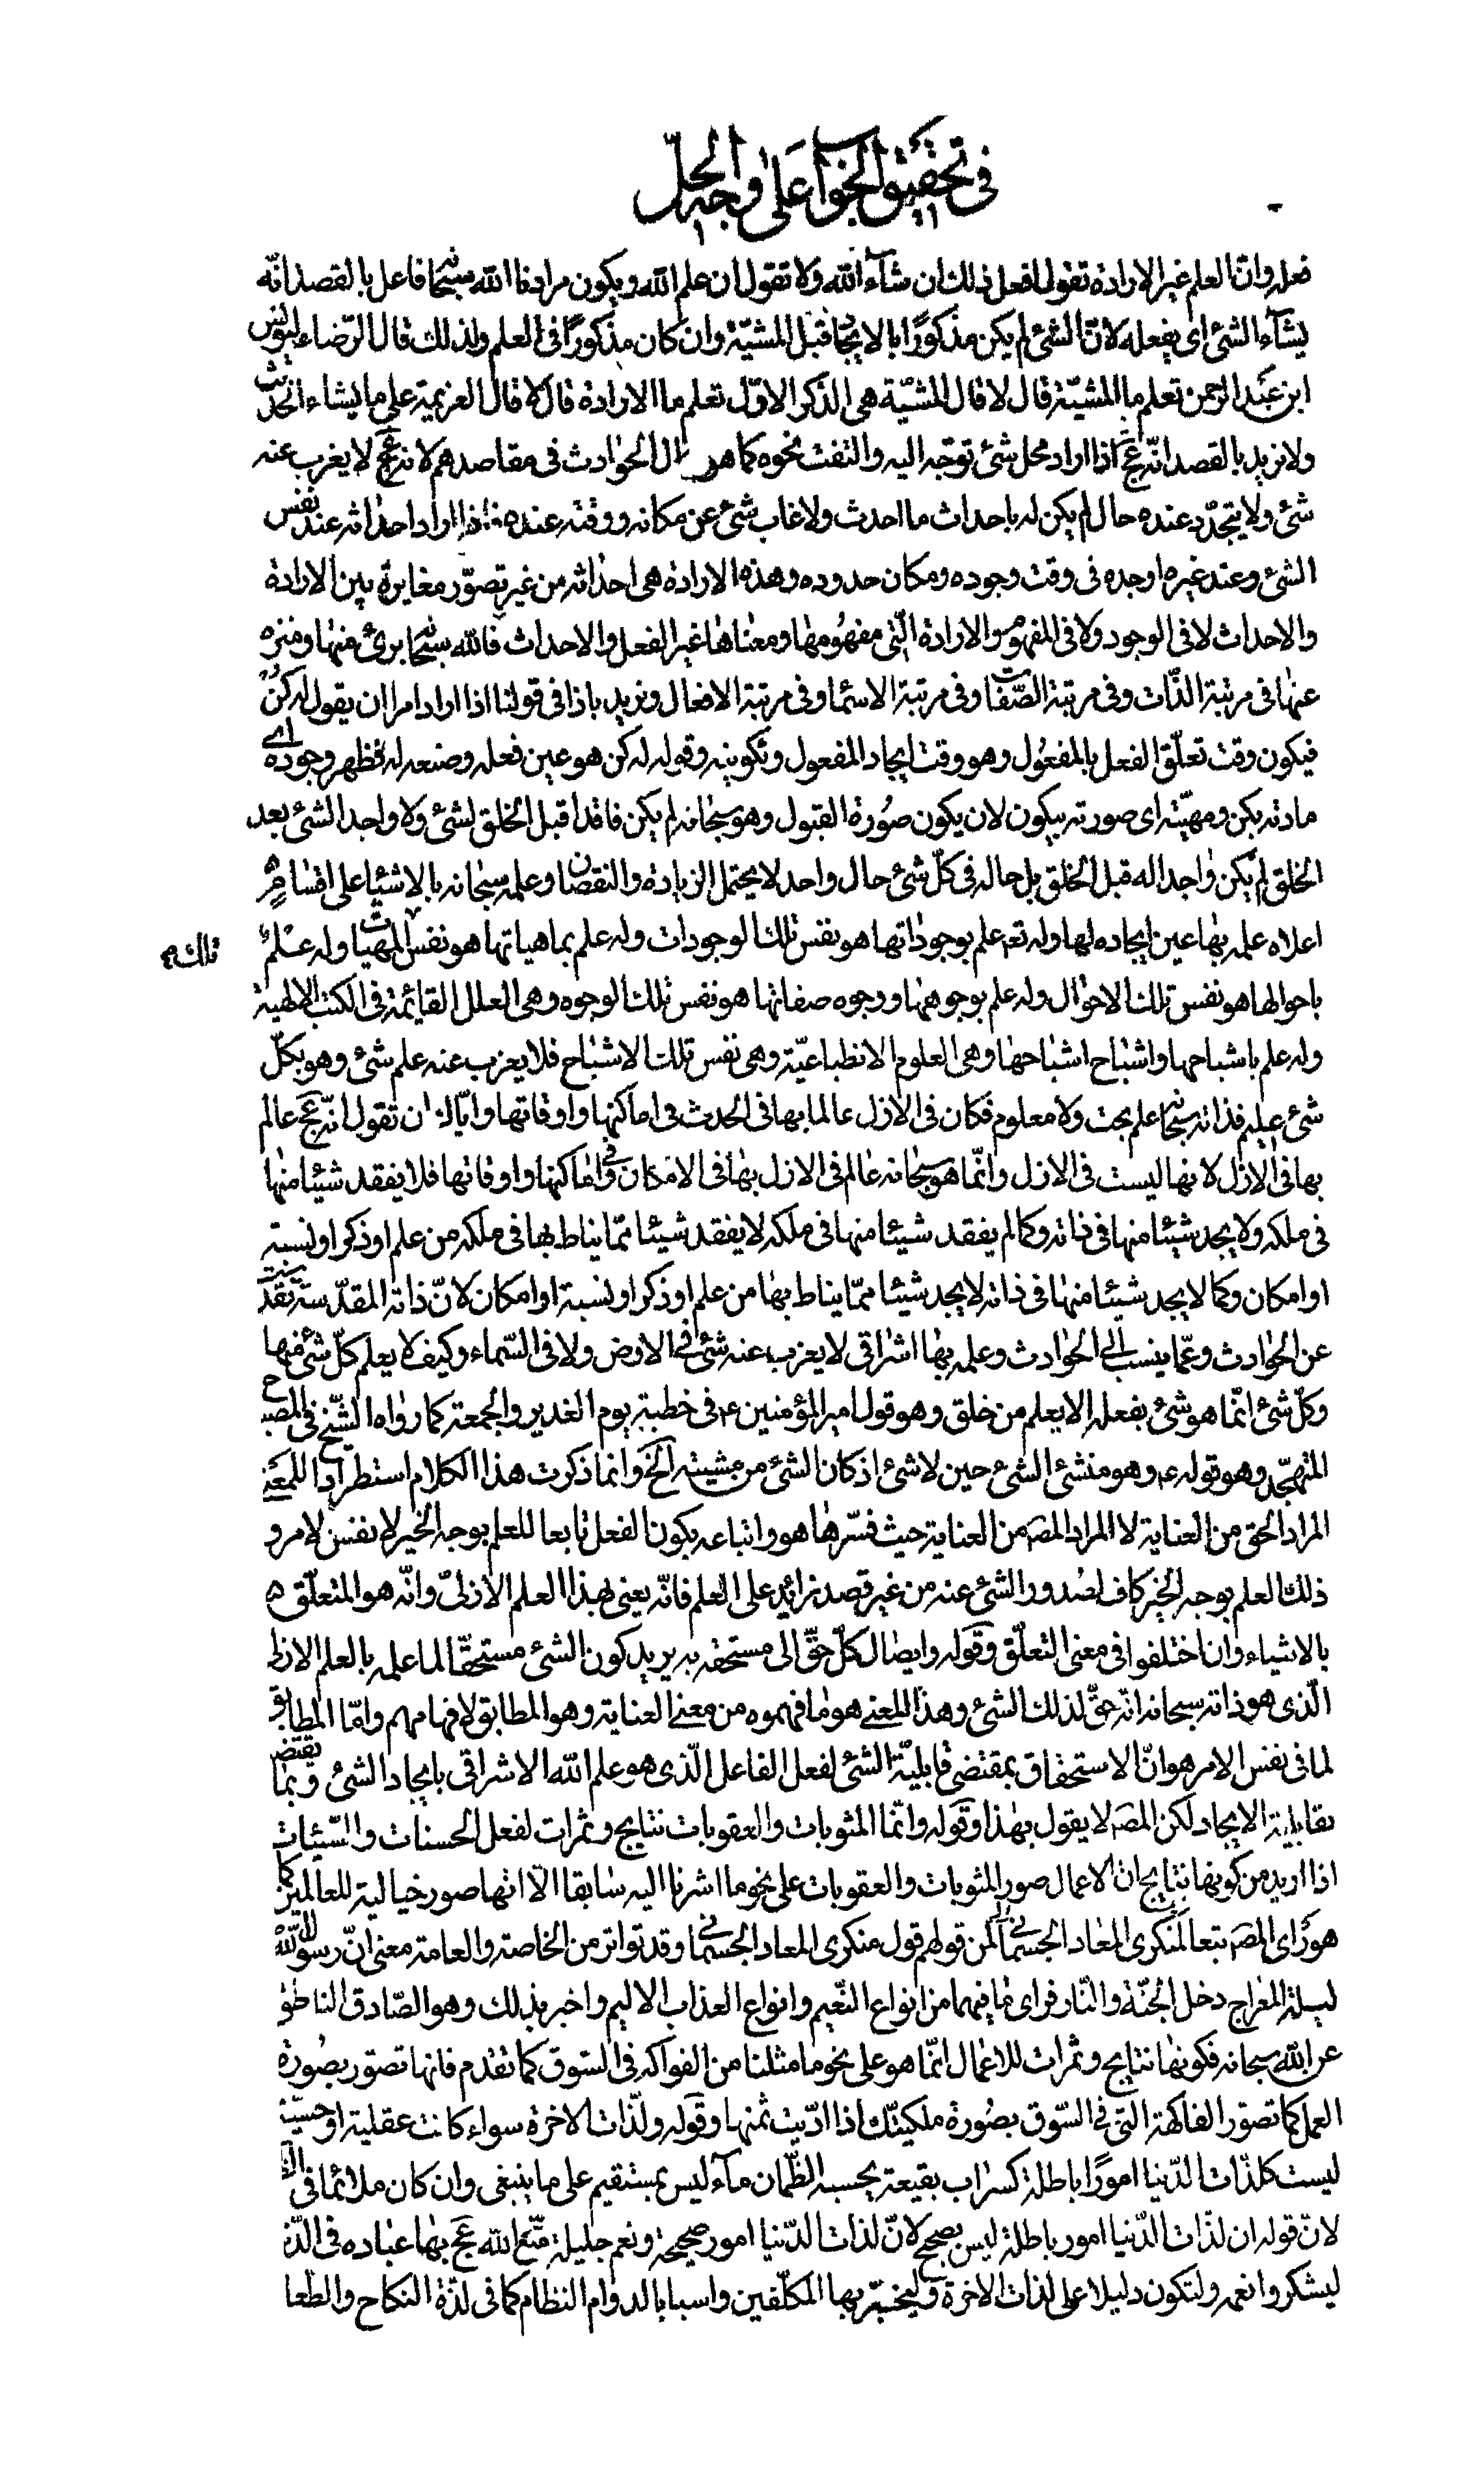 في تحقيق الجواب على وجه الحل
فعله وانّ العلم غير الارادة تقول افعل ذلك ان شآء الله ولا تقول ان علم الله ويكون مرادنا الله سبحانه فاعل بالقصد انّه
يشآء الشئ اى يفعله لانّ الشئ لم يكن مذكورًا بالايجاد قبل المشيّة وان كان مذكورًا في العلم ولذلك قال الرّضاء ليونس
ابن عبد الرحمن تعلم ما المشيّة قال لا قال المشيّة هى الذكر الاوّل تعلم ما الارادة قال لا قال العزيمة على ما يشاء الحديث
ولا نريد بالقصد انّه عج اذا اراد محل شئ توجّه اليه والتفت نحوه كما هو حال الحوادث في مقاصدهم لانه عج لا يغرب عنه
شئ ولا يتجدّد عنده حال لم يكن له باحداث ما احدث ولا غاب شئ عن مكانه ووقته عنده فاذا اراد احداثه عند نفس
الشئ وعند غيره اوجده فى وقت وجوده ومكان حدوده وهذه الارادة هى احداثه من غير تصوّر مغايرة بين الارادة
والاحداث لا فى الوجود ولا في المفهوم والارادة الّتى مفهومها ومعناها غير الفعل والاحداث فالله سبحانه برئ منها ومنزه
عنها فى مرتبة الذّات وفى مرتبة الصّفات وفى مرتبة الاسمآ وفى مرتبة الافعال ونريد باذا فى قولنا اذا اراد امرا ان يقول له كن
فيكون وقت تعلّق الفعل بالمفعول وهو وقت ايجاد المفعول وتكوينه وقوله له كن هو عين فعله وصنعه له فظهر وجوده اى
مادته بكن ومهيّته اى صورته بيكون لان يكون صورة القبول وهو سبحانه لم يكن فاقدا قبل الخلق لشئ ولا واجدا لشئ بعد
الخلق لم يكن واجدا له قبل الخلق بل حاله فى كلّ شئ حال واحد لا يحتمل الزيادة والنقصان وعلمه سبحانه بالاشيآ على اقسام
اعلاه علمه بها عين ايجاده لها وله تع علم بوجوداتها هو نفس تلك الوجودات وله علم بماهياتها هو نفس تلك المهيات وله علم
باحوالها هو نفس تلك الاحوال وله علم بوجوهها ووجوه صفاتها هو نفس تلك الوجوه وهى العلل القايمة فى الكتب الالهية
وله علم باشباحها واشباح اشباحها وهى العلوم الانطباعيّة وهى نفس تلك الاشباح فلا يعزب عنه علم شئ وهو بكلّ
شئ عليم فذاته سبحانه علم بحت ولا معلوم فكان فى الازل عالما بها فى الحدث فى اماكنها واوقاتها وايّاك ان تقول انّه عج عالم
بها فى الازل لانها ليست فى الازل وانّما هو سبحانه عالم فى الازل بها فى الامكان وفى اماكنها واوقاتها فلا يفقد شيئا منها
فى ملكه ولا يجد شيئا منها فى ذاته وكما لم يفقد شيئا منها فى ملكه لا يفقد شيئا ممّا يناط بها فى ملكه من علم او ذكر او نسبة
او امكان وكما لا يجد شيئا منها فى ذاته لا يجد شيئا ممّا يناط بها من علم او ذكر او نسبة او امكان لانّ ذاته المقدّسة تقدّست
عن الحوادث وعمّا ينسب الى الحوادث وعلمه بها اشراقى لا يعزب عنه شئ فى الارض ولا فى السّماء وكيف لا يعلم كلّ شئ منها
وكلّ شئ انّما هو شئ بفعله الا يعلم من خلق وهو قول امير المؤمنين ع فى خطبته يوم الغدير والجمعة كما رواه الشّيخ فى المصباح
المتهجّد وهو قوله ع وهو منشئ الشئ حين لا شئ اذ كان الشئ من مشيته الخ وانما ذكرت هذا الكلام استطرادا للمعنى
المراد الحق من العناية لا المراد المصَ من العناية حيث فسّرها هو واتباعه بكون الفعل تابعا للعلم بوجه الخير لا بنفس الامر و
ذلك العلم بوجه الخير كاف لصدور الشئ عنه من غير قصد زائد على العلم فانّه يعنى بهذا العلم الازلىّ وانّه هو المتعلّق
بالاشياء وان اختلفوا فى معنى التعلّق وقوله وايصال كلّ حقّ الى مستحقه به يريد كون الشئ مستحقّا لما علمه بالعلم الازلى
الّذى هو ذاته سبحانه انّه حقّ لذلك الشئ وهذا المعنى هو ما فهموه من معنى العناية وهو المطابق لافهامهم وامّا المطابق
لما فى نفس الامر هو انّ الاستحقاق بمقتضى قابليّة الشئ لفعل الفاعل الّذى هو علم الله الاشراقى بايجاد الشئ وبما تقتضى
بقابلية الايجاد لكن المصَ لا يقول بهذا وقوله وانّما المثوبات والعقوبات نتايج وثمرات لفعل الحسنات والسّيئات
اذا اريد من كونها نتايج ان الاعمال صور المثوبات والعقوبات على نحو ما اشرنا اليه سابقا الّا انّها صور خيالية للعاملين كما
هو رأى المصَ تبعا لمنكرى المعاد الجسمانى لمن قولهم قول منكرى المعاد الجسمانى وقد تواتر من الخاصة والعامة معنى انّ رسول الله
ليلة المعراج دخل الجنّة والنّار فراى ما فيهما من انواع النّعيم وانواع العذاب الاليم واخبر بذلك وهو الصّادق الناطق
عن الله سبحانه فكونها نتايج وثمرات للاعمال انّما هو على نحو ما مثلنا من الفواكه فى السّوق كما تقدم فانها تصوّر بصورة
العمل كما تصوّر الفاكهة الّتى فى السّوق بصورة ملكيتك اذا ادّيت ثمنها وقوله ولذّات الاخرة سواء كانت عقلية او حسيّة
ليست كلذّات الدّنيا امورًا باطلة كسراب بقيعة يحسبه الظّمان مآء ليس بمستقيم على ما ينبغى وان كان ملائما فى
لانّ قوله ان لذّات الدّنيا امور باطلة ليس بصحيح لانّ لذات الدّنيا امور صحيحة ونعم جليلة متّع الله عج بها عباده فى الدّنيا
ليشكروا نعمه ولتكون دليلا على لذات الاخرة وليختبر بها المكلّفين واسبابا لدوام النظام كما فى لذّة النكاح والطعا